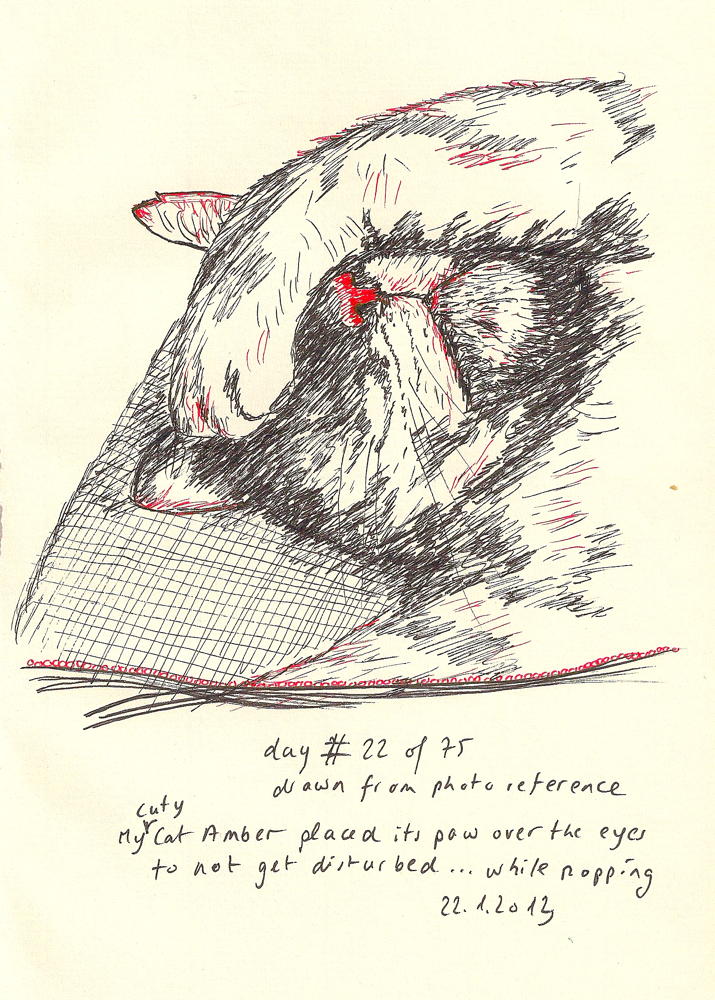 day # 22 of 75
drawn from photo reference
cuty
My Cat Amber placed its paw over the eyes
to not get disturbed... while napping